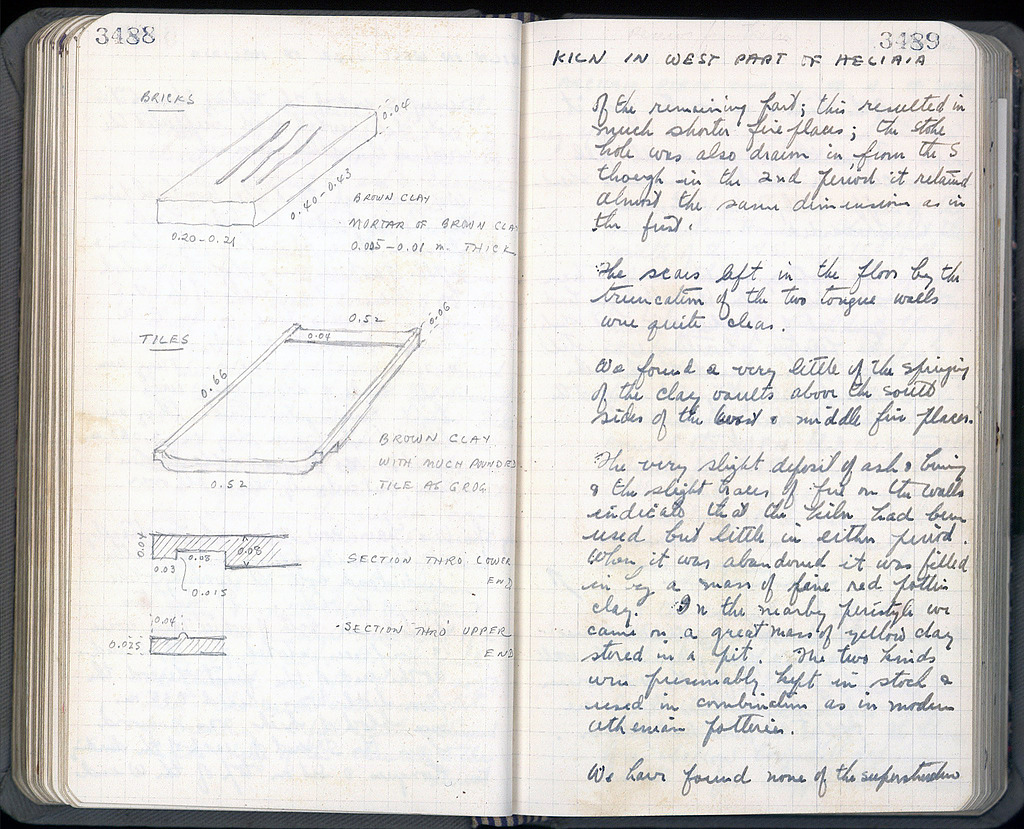 3488
BRICKS
0.04
0.40-0.43
0.20-0.21
BROWN CLAY
MORTAR OF BROWN CLAY
0.005-0.01 m. THICK
TILES
0.52
0.06
0.04
0.66
0.52
BROWN CLAY
WITH MUCH POUNDED
TILE AS GROG
0.04
0.08
0.08
0.03
0.015
SECTION THRO LOWER
END
0.04
0.025
SECTION THRO UPPER
END
3489
KILN IN WEST PART OF HELIAIA
of the remaining part; this resulted in
much shorter fire places; the stoke
hole was also drawn in from the S
though in the 2nd period it retained
almost the same dimensions as in
the first.
The scars left in the floor by the
truncation of the two tongue walls
were quite clear.
We found a very little of the springing
of the clay vaults above the south
sides of the west & middle fire places.
The very slight deposit of ash & burning
& the slight traces of fire on the walls
indicate that the kiln had been
used but little in either period.
When it was abandoned it was filled
in by a mass of fine red potters
clay. In the nearby peristyle we
came on a great mass of yellow clay
stored in a pit. The two kinds
were presumably kept in stock &
used in combination as in modern
Athenian potteries.
We have found none of the superstructure